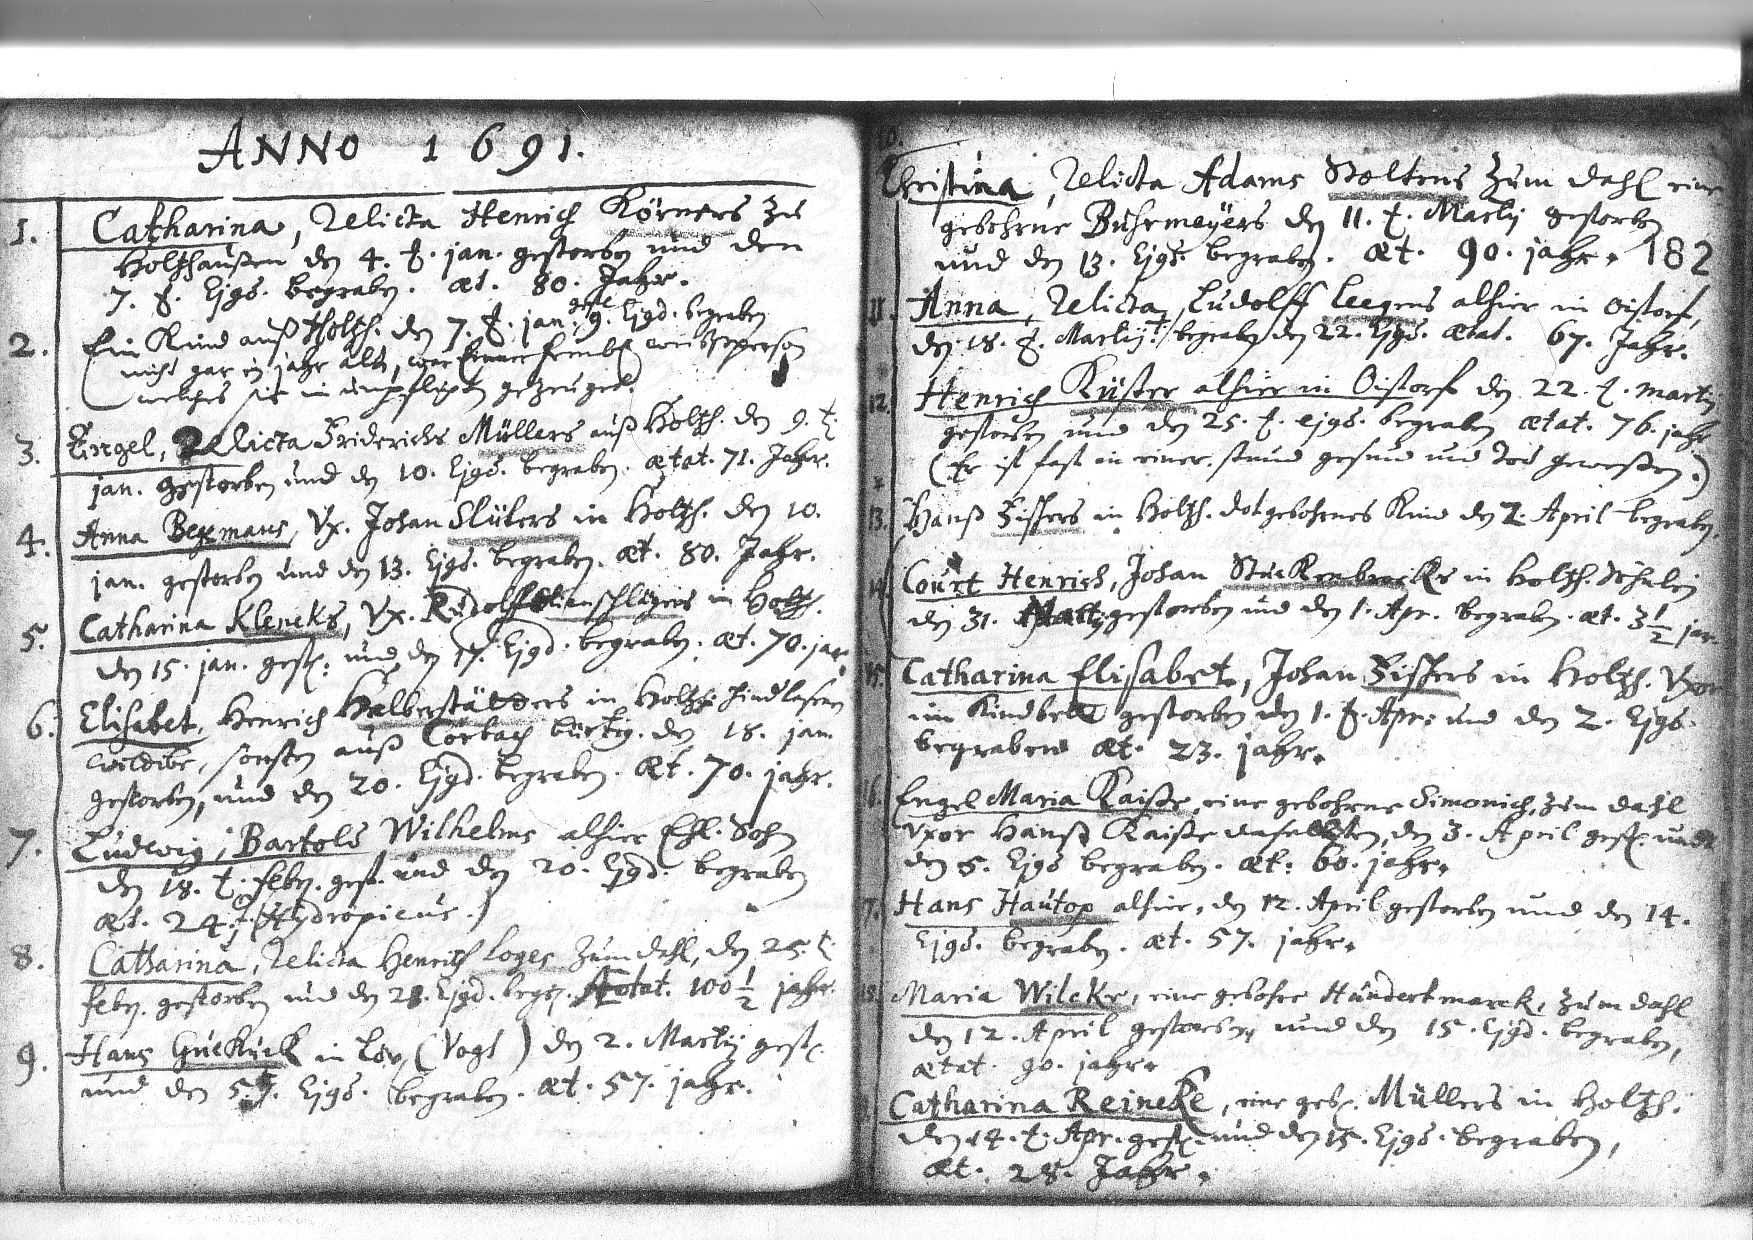 ANNO 1691.
1. Catharina, Relicta Henrich Körners zu
Holtzhaußen den 4. t. jan. gestorben und den
7. t. Ejqs. begraben. æt. 80. Jahr.
2. Ein Kind auß Holtzh. den 7. t. jan. 9. Ejqd. begraben
nicht gar ein jahr alt, war Einer frembd weibsperson
welches sie in gezeuget.
3. Engel, Relicta Friderichs Müllers auß Holtzh. den 9. t.
jan. gestorben und den 10. Ejqs. begraben. ætat. 71. Jahr.
4. Anna Begemans, Vx. Johan Slüters in Holtzh. den 10.
jan. gestorben und den 13. Ejqs. begraben. æt. 80. Jahr.
5. Catharina Klencks, Vx. Rudolff in Holtzh.
den 15. jan. gest: und den 17. Ejqd. begraben. æt. 70. jar.
6. Elisabet, Henrich Halberstädters in Holtzh. hindlaßene
Wittibe, sonsten auß Corbach bürtig. den 18. jan.
gestorben, und den 20. Ejqd. begraben. æt. 70. jahr.
7. Ludwig, Bartold Wilhelms alhier Ehl. Sohn
den 18. t. feb. gest. und den 20. Ejqd. begraben
æt. 24. j. (Hydropicus.)
8. Catharina, Relicta Henrich Loges zum dahl, den 25. t.
feb. gestorben und den 28. Ejqd. begr. Ætat. 100 1/2 jahr.
9. Hans Guckuck in Löv, (Vogt) den 2. Martij gest.
und den 5. t. Ejqs. begraben. æt. 57. jahr.
10.
Christina, Relicta Adams Noltens zum dahl eine
gebohrne Buhrmeyers den 11. t. Martij gestorben
und den 13. Ejqs. begraben. æt. 90. jahr. 182
11. Anna, Relicta Ludolff Leegens alhier in Oistorf,
den 18. t. Martij begraben den 22. Ejqs. ætat. 67. Jahr.
12. Henrich Küster alhier in Oistorf den 22. t. martij
gestorben und den 25. t. ejqs. begraben ætat. 76. jahr.
(Er ist fast in einer stund gesund und tod geweßen.)
13. Hanß Zißers in Holtzh. dotgebohrnes Kind den 2. April begraben.
14. Court Henrich, Johan Stuckenbrocks in Holtzh. Söhnlein
den 31. Martij gestorben und den 1. Apr. begraben. æt. 3 1/2 jar.
15. Catharina Elisabet, Johan Zißers in Holtzh. Vxor
im Kindbett gestorben den 1. t. Apr: und den 2. Ejqs.
begraben æt. 23. jahr.
16. Engel Maria Kaiser, eine gebohrne Simonich, zum dahl
Vxor Hanß Kaisers daselbsten, den 3. April gest. und
den 5. Ejqs begraben. æt: 60. jahr.
17. Hans Hautop alhier, den 12. April gestorben und den 14.
Ejqs. begraben. æt. 57. jahr.
18. Maria Wilcke, eine gebohre Hundertmarck, zum dahl
den 12. April gestorben, und den 15. Ejqd. begraben,
ætat. 90. jahr.
Catharina Reineke, eine geb. Müllers in Holtzh.
den 14. t. Apr. gest. und den 15. Ejqs. begraben,
æt. 28. Jahr.